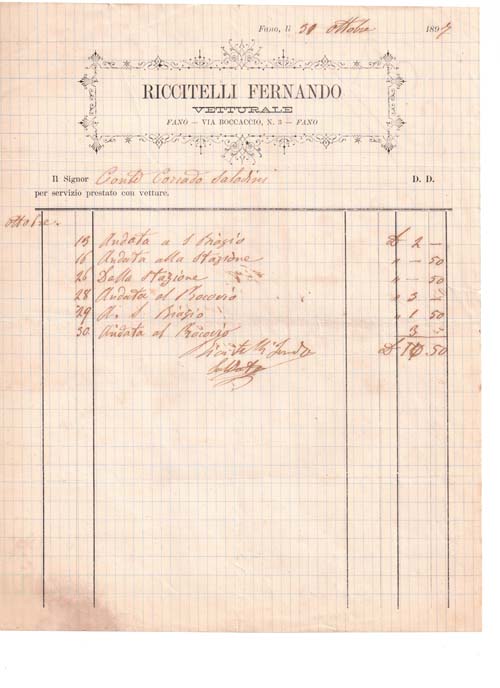 Fano, li 30 ottobre 1897
RICCITELLI FERNANDO
VETTURALE
FANO — VIA BOCCACCIO, N. 3 — FANO
Il Signor Conte Corrado Saladini D. D.
per servizio prestato con vetture.
ottobre
13 Andata a S Biagio £ 2 —
16 Andata alla Stazione " — 50
26 Dalla Stazione " — 50
28 Andata al " 3 —
29 A S Biagio " 1 50
30. Andata al 3 —
£ 10.50